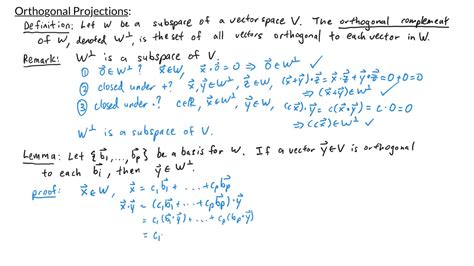 Orthogonal Projections:
Definition: Let W be a subspace of a vector space V. The orthogonal complement
of W, denoted W^⊥, is the set of all vectors orthogonal to each vector in W.
Remark: W^⊥ is a subspace of V.
① 0⃗ ∈ W^⊥? x⃗ ∈ W, x⃗ · 0⃗ = 0 ⇒ 0⃗ ∈ W^⊥ ✓
② closed under +? x⃗, y⃗ ∈ W^⊥, z⃗ ∈ W, (x⃗+y⃗)·z⃗ = x⃗·z⃗ + y⃗·z⃗ = 0+0 = 0
⇒ (x⃗+y⃗) ∈ W^⊥ ✓
③ closed under ·? c∈ℝ, x⃗ ∈ W^⊥, y⃗ ∈ W, (cx⃗)·y⃗ = c(x⃗·y⃗) = c·0 = 0
⇒ (cx⃗) ∈ W^⊥ ✓
W^⊥ is a subspace of V.
Lemma: Let {b⃗₁, ..., b⃗ₚ} be a basis for W. If a vector y⃗ ∈ V is orthogonal
to each b⃗ᵢ, then y⃗ ∈ W^⊥.
proof: x⃗ ∈ W, x⃗ = c₁b⃗₁ + ... + cₚb⃗ₚ
x⃗·y⃗ = (c₁b⃗₁ + ... + cₚb⃗ₚ)·y⃗
= c₁(b⃗₁·y⃗) + ... + cₚ(b⃗ₚ·y⃗)
= c₁·